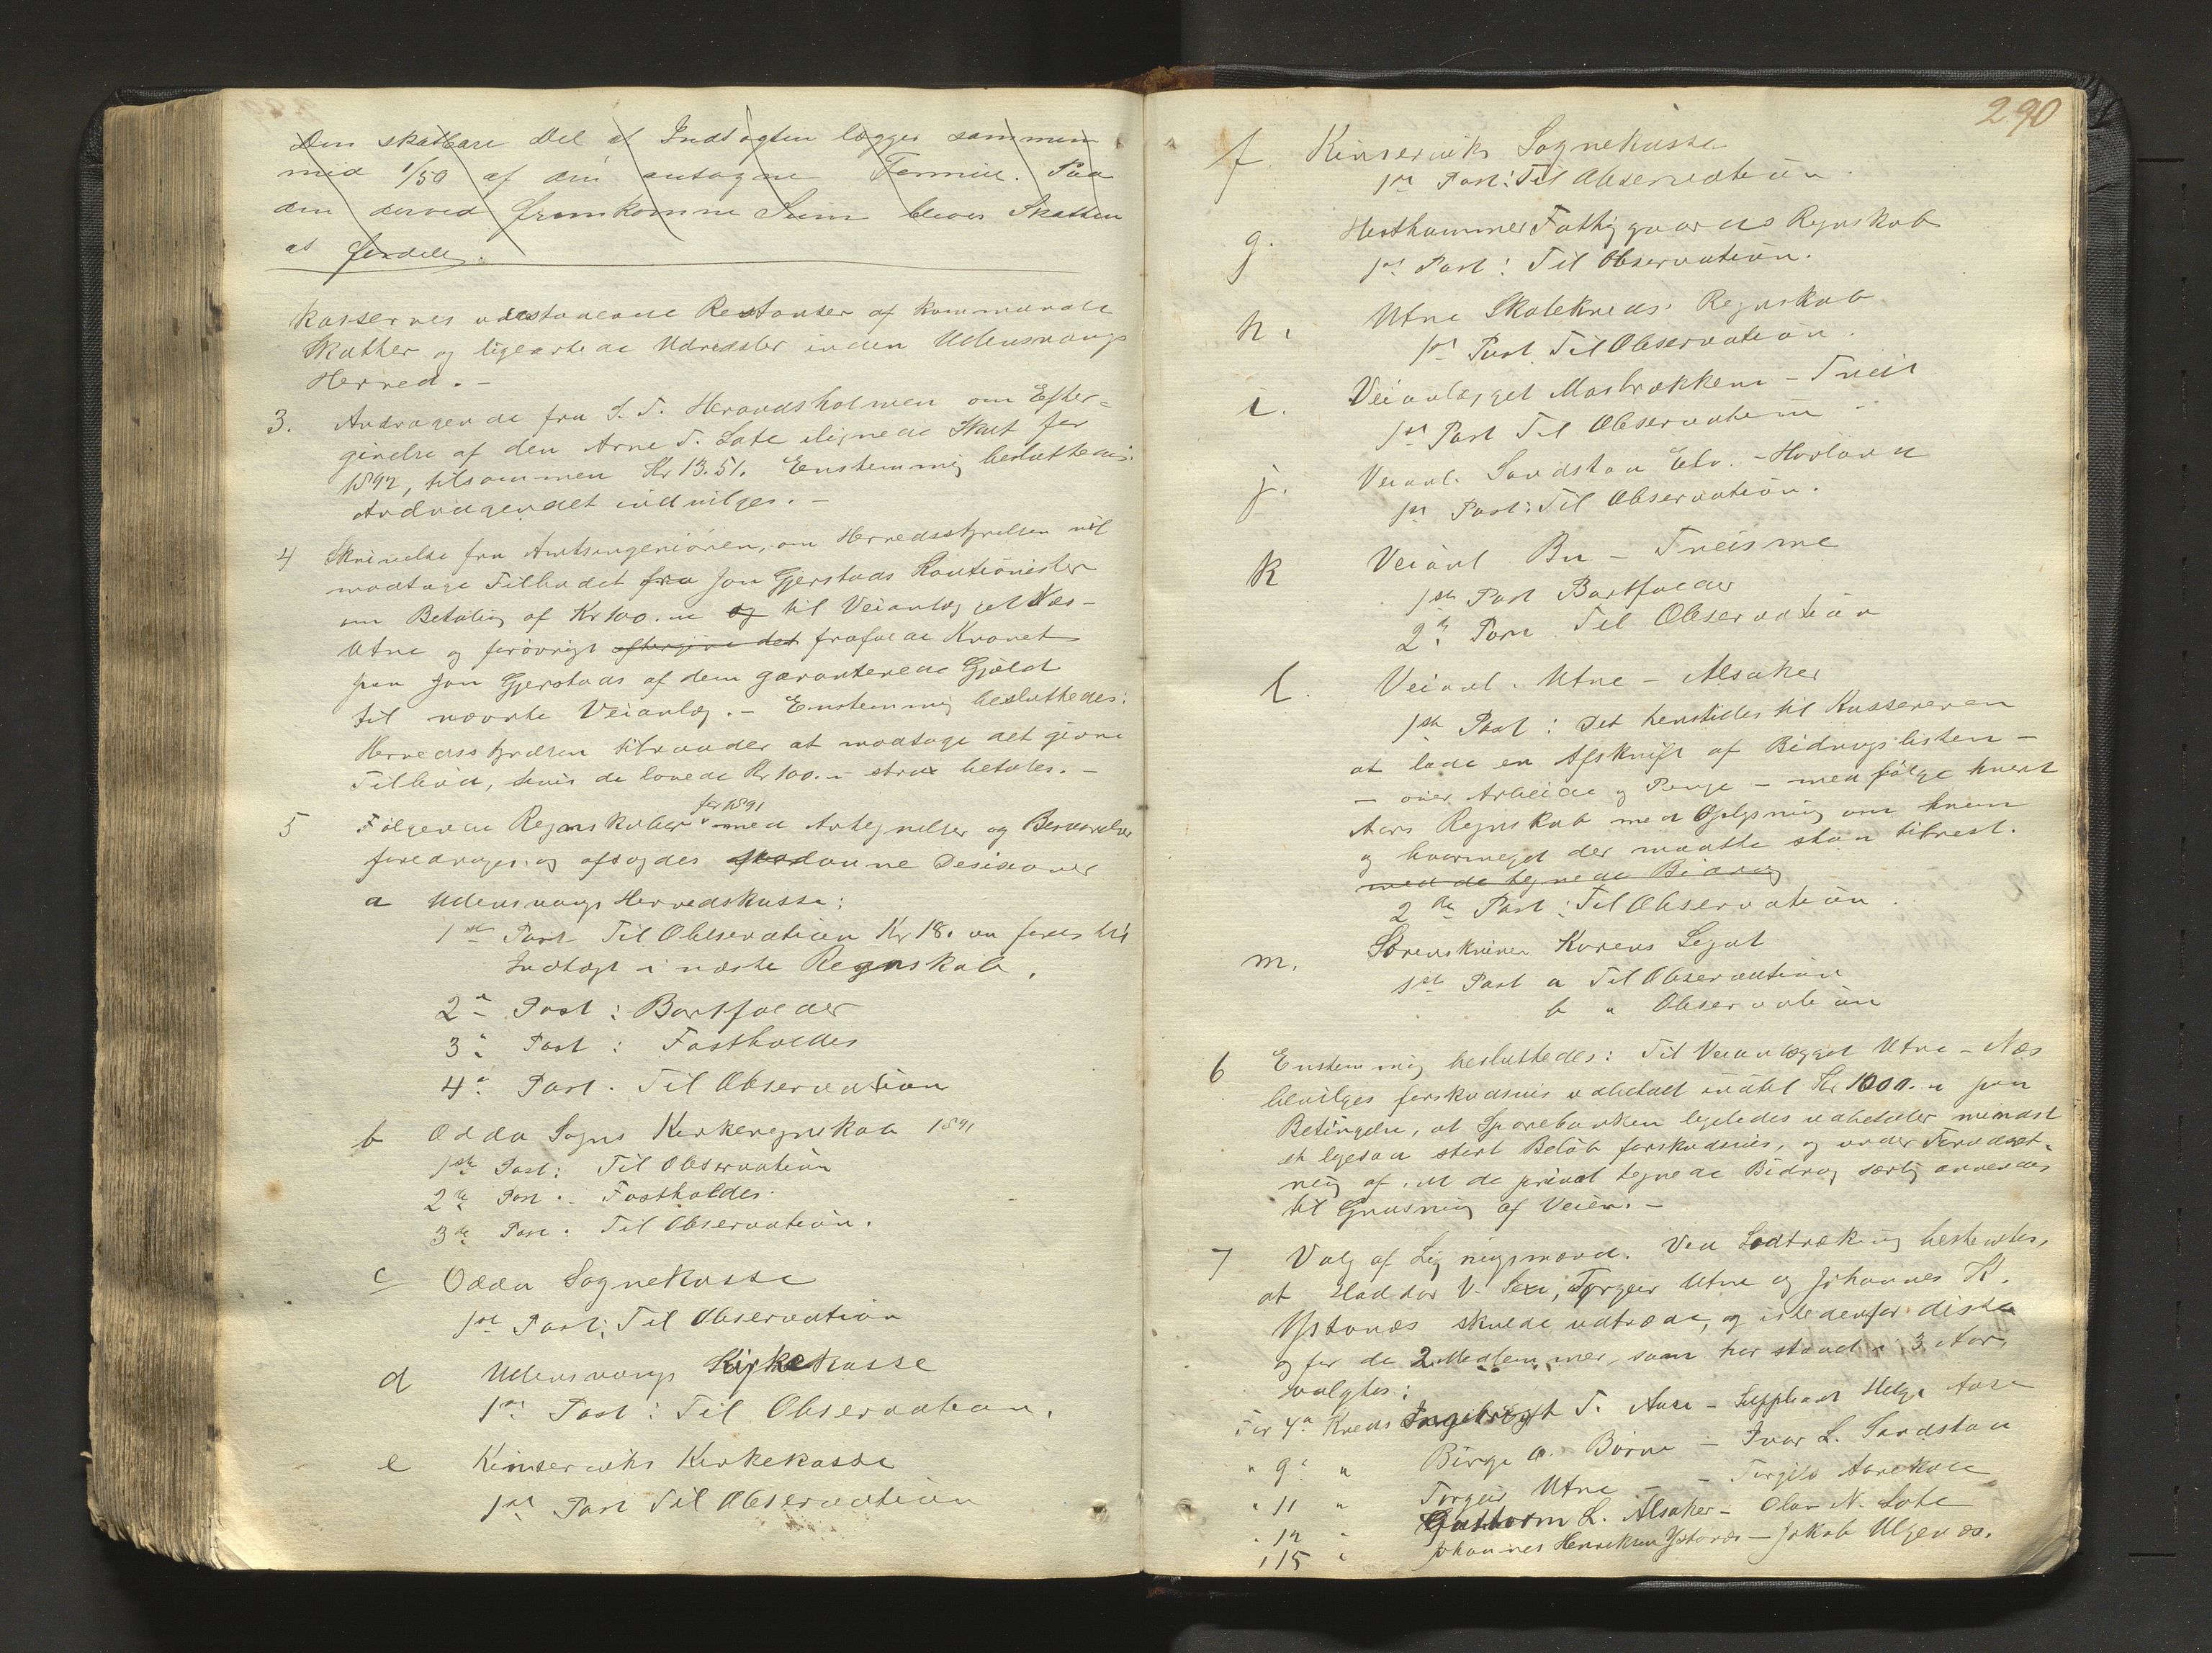 Den skatbare Del af Indtægten lægges sammen
med 1/50 af den antagne Formue. Paa
den derved fremkomne Sum bliver Skatten
at fordele.
kassernes udestaaende Restanser af kommunale
Skatter og ligeartede Udredsler inden Ullensvangs
Herred. -
3. Andragende fra S. T. Herandsholmen om Efter=
givelse af den Arne T. Lote ilignede Skat for
1892, tilsammen Kr 13.51. Enstemmig besluttedes:
Andragendet indvilges. -
4 Skrivelse fra Amtsingeniøren, om Herredsstyrelsen vil
modtage Tilbudet fra Jon Gjerstads Kautionister
om Betaling af Kr 100. " og til Veianlægget Næs -
Utne og forøvrigt eftergive det frafalde Kravet
paa Jon Gjerstads af dem garanterede Gjæld
til nævnte Veianlæg. - Enstemmig besluttedes:
Herredsstyrelsen tilraader at modtage det givne
Tilbud, hvis de lovede Kr 100. - strax betales. -
5 Følgende Regnskaber for 1891 med Antegnelser og Besvarelser
foredroges og afsagdes saadanne Desisioner
a Ullensvangs Herredskasse:
1ste Post Til Observation Kr 18. " føres til
Indtægt i næste Regnskab.
2den Post: Bortfalder
3die Post: Fastholdes
4de Post. Til Observation
b Odda Sogns Kirkeregnskab 1891
1ste Post: Til Observation
2den Post. Fastholdes.
3die Post. Til Observation.
c Odda Sognekasse
1ste Post: Til Observation
d Ullensvangs Kirkekasse
1ste Post: Til Observation.
e Kinserviks Kirkekasse
1ste Post Til Observation
290
f. Kinserviks Sognekasse
1ste Post: Til Observation.
g. Hesthammer Fattiggaards Regnskab
1ste Post: Til Observation.
h. Utne Skolekreds Regnskab
1ste Post Til Observation.
i. Veianlægget Maabrækkene - Tveit
1ste Post Til Observation.
j. Veianl. Sandstaa Elv. - Hovland
1ste Post: Til Observation.
k Veianl Bu - Tveisme
1ste Post Bortfalder
2den Post Til Observation
l. Veianl. Utne - Alsaker
1ste Post: Det henstilles til Kassereren
at lade en Afskrift af Bidragslisten -
- over Arbeide og Penge - medfølge hvert
Aars Regnskab med Oplysning om hvem
og hvormeget der maatte staa tilrest.
med de tegnede Bidrag
2den Post: Til Observation.
m. Sorenskriver Korens Legat
1ste Post a Til Observation
b " Observation
6 Enstemmig besluttedes: Til Veianlægget Utne - Næs
bevilges forskudsvis udbetalt indtil Kr 1000. " paa
Betingelse, at Sparebanken ligeledes udbetaler mindst
et ligesaa stort Beløb forskudsvis, og under Forudsæt-
ning af, at de privat tegnede Bidrag særlig anvendes
til Grusning af Veien. -
7 Valg af Ligningsmænd. Ved Lodtrækning bestemtes,
at Haldor V. Sexe, Torgeir Utne og Johannes H.
Ystanæs skulde udtræde, og istedenfor disse
og for de 2 Medlemmer, som har staaet i 3 Aar,
valgtes:
For 4de Kreds Ingebrigt T. Aase - Suppleant Helge Aase
" 9de " Børge O. Børve - Ivar L. Sandstaa
" 11 " Torgeir Utne - Torgils Aarekoll
" 12 " Guttorm L. Alsaker - Olav N. Lote
" 15 " Johannes Henriksen Ystanæs - Jakob Ulgenæs.